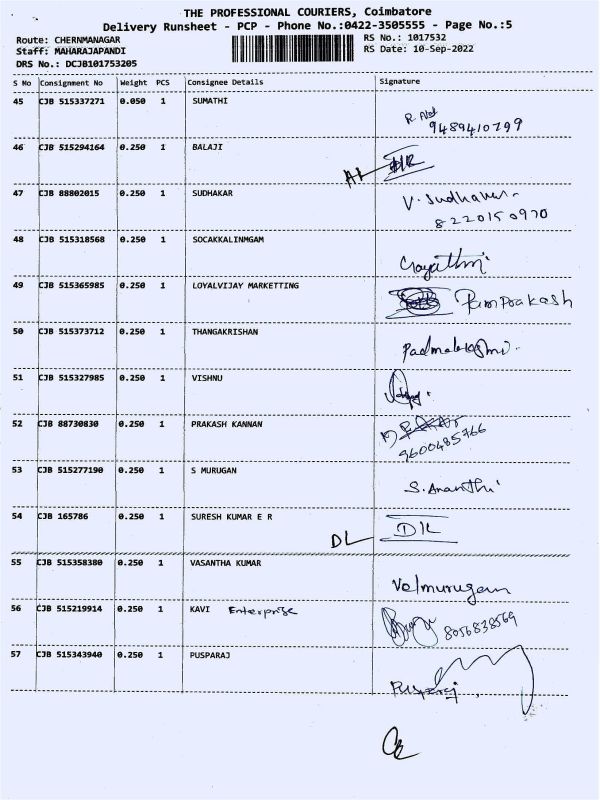 THE PROFESSIONAL COURIERS, Coimbatore
Delivery Runsheet - PCP - Phone No.:0422-3505555 - Page No.:5
Route: CHERNMANAGAR RS No.: 1017532
Staff: MAHARAJAPANDI RS Date: 10-Sep-2022
DRS No.: DCJB101753205
S No Consignment No Weight PCS Consignee Details Signature
45 CJB 515337271 0.050 1 SUMATHI
9489410799
46 CJB 515294164 0.250 1 BALAJI
47 CJB 88802015 0.250 1 SUDHAKAR V. Sudhakar
8220150970
48 CJB 515318568 0.250 1 SOCAKKALINMGAM Gayathri
49 CJB 515365985 0.250 1 LOYALVIJAY MARKETTING Ramprakash
50 CJB 515373712 0.250 1 THANGAKRISHAN Padmalakshmi
51 CJB 515327985 0.250 1 VISHNU
52 CJB 88730830 0.250 1 PRAKASH KANNAN
9600485766
53 CJB 515277190 0.250 1 S MURUGAN S. Ananthi
54 CJB 165786 0.250 1 SURESH KUMAR E R DL
55 CJB 515358380 0.250 1 VASANTHA KUMAR Velmurugan
56 CJB 515219914 0.250 1 KAVI Enterprise 8056838569
57 CJB 515343940 0.250 1 PUSPARAJ Pusparaj